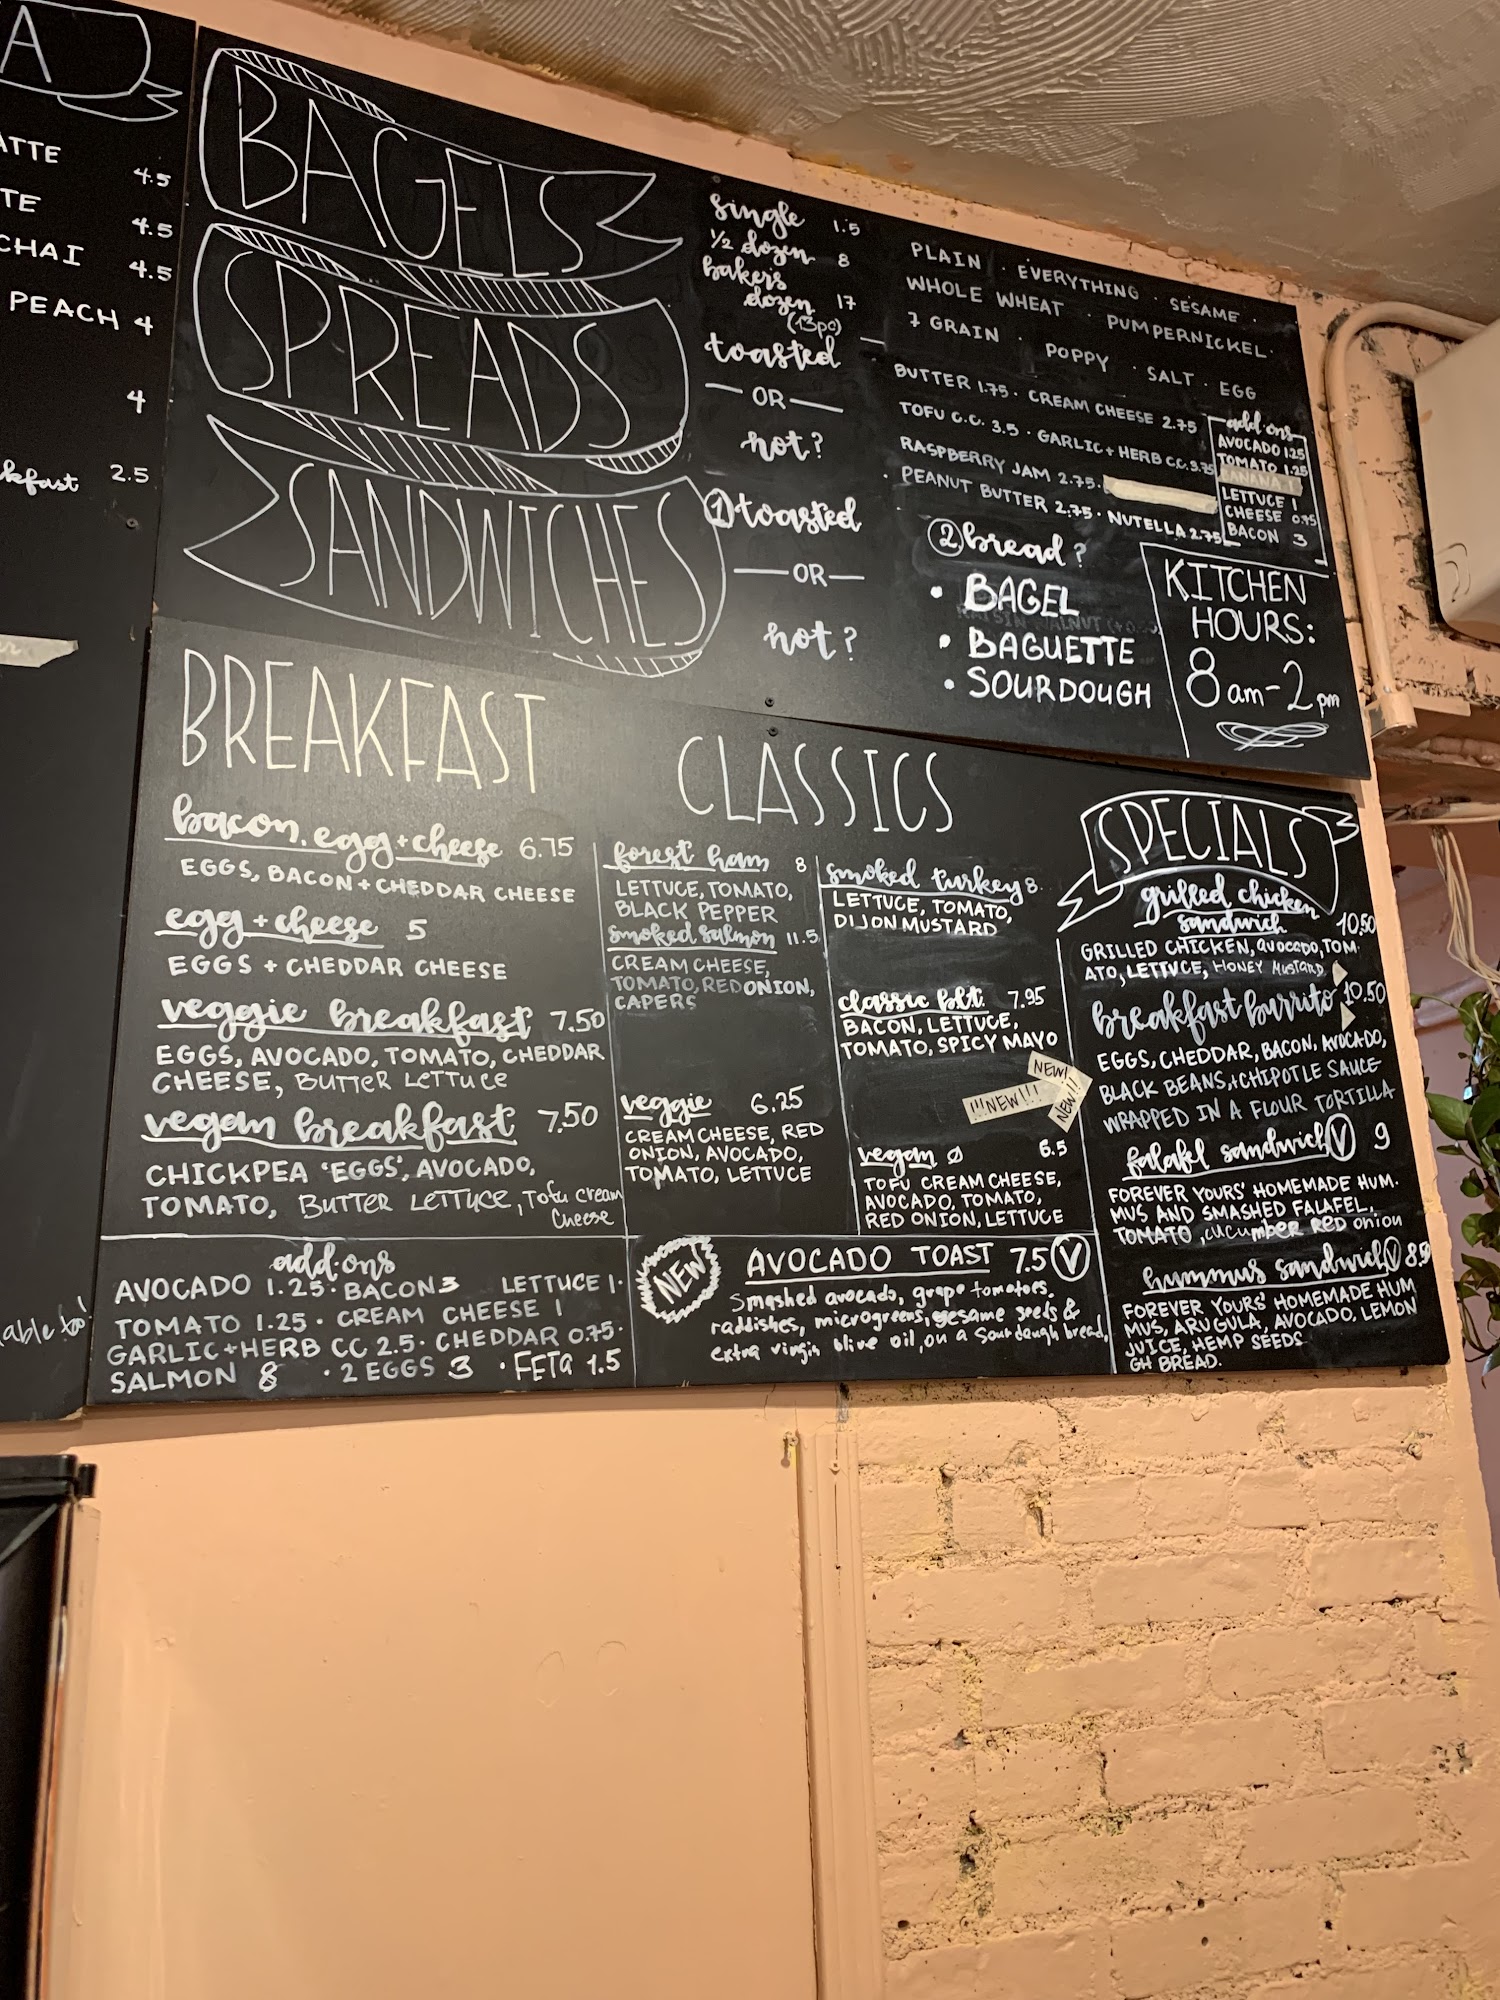 A
ATTE 4.5
TE 4.5
CHAI 4.5
PEACH 4
4
kfast 2.5
able too!
BAGELS
SPREADS
SANDWICHES
single 1.5
1/2 dozen 8
bakers
dozen 17
(13pc)
toasted
OR
hot?
PLAIN · EVERYTHING · SESAME ·
WHOLE WHEAT · PUMPERNICKEL ·
7 GRAIN · POPPY · SALT · EGG
BUTTER 1.75 · CREAM CHEESE 2.75
TOFU C.C. 3.5 · GARLIC + HERB CC. 3.75
RASPBERRY JAM 2.75 ·
· PEANUT BUTTER 2.75 · NUTELLA 2.75
add ons
AVOCADO 1.25
TOMATO 1.25
BANANA 1
LETTUCE 1
CHEESE 0.75
BACON 3
① toasted
OR
hot?
② bread?
• BAGEL
• BAGUETTE
• SOURDOUGH
KITCHEN
HOURS:
8am-2pm
BREAKFAST
bacon, egg + cheese 6.75
EGGS, BACON + CHEDDAR CHEESE
egg + cheese 5
EGGS + CHEDDAR CHEESE
veggie breakfast 7.50
EGGS, AVOCADO, TOMATO, CHEDDAR
CHEESE, BUTTER LETTUCE
vegan breakfast 7.50
CHICKPEA 'EGGS', AVOCADO,
TOMATO, BUTTER LETTUCE, TOFU cream
cheese
add-ons
AVOCADO 1.25 · BACON 3 LETTUCE 1 ·
TOMATO 1.25 · CREAM CHEESE 1
GARLIC + HERB CC 2.5 · CHEDDAR 0.75 ·
SALMON 8 · 2 EGGS 3 · FETA 1.5
CLASSICS
forest ham 8
LETTUCE, TOMATO,
BLACK PEPPER
smoked salmon 11.5
CREAM CHEESE,
TOMATO, RED ONION,
CAPERS
veggie 6.25
CREAM CHEESE, RED
ONION, AVOCADO,
TOMATO, LETTUCE
smoked turkey 8
LETTUCE, TOMATO,
DIJON MUSTARD
classic blt. 7.95
BACON, LETTUCE,
TOMATO, SPICY MAYO
NEW!
!!!NEW!!!
NEW!!
vegan ∅ 6.5
TOFU CREAM CHEESE,
AVOCADO, TOMATO,
RED ONION, LETTUCE
NEW
AVOCADO TOAST 7.5 Ⓥ
Smashed avocado, grape tomatoes,
raddishes, microgreens, sesame seeds &
extra virgin olive oil, on a sourdough bread,
SPECIALS
grilled chicken
sandwich 10.50
GRILLED CHICKEN, avocado, TOM·
ATO, LETTUCE, HONEY MUSTARD
breakfast burrito 10.50
EGGS, CHEDDAR, BACON, AVOCADO,
BLACK BEANS, + CHIPOTLE SAUCE
WRAPPED IN A FLOUR TORTILLA
falafel sandwich Ⓥ 9
FOREVER YOURS' HOMEMADE HUM·
MUS AND SMASHED FALAFEL,
TOMATO, cucumber RED onion
hummus sandwich Ⓥ 8.50
FOREVER YOURS' HOMEMADE HUM
MUS, ARUGULA, AVOCADO, LEMON
JUICE, HEMP SEEDS
GH BREAD.